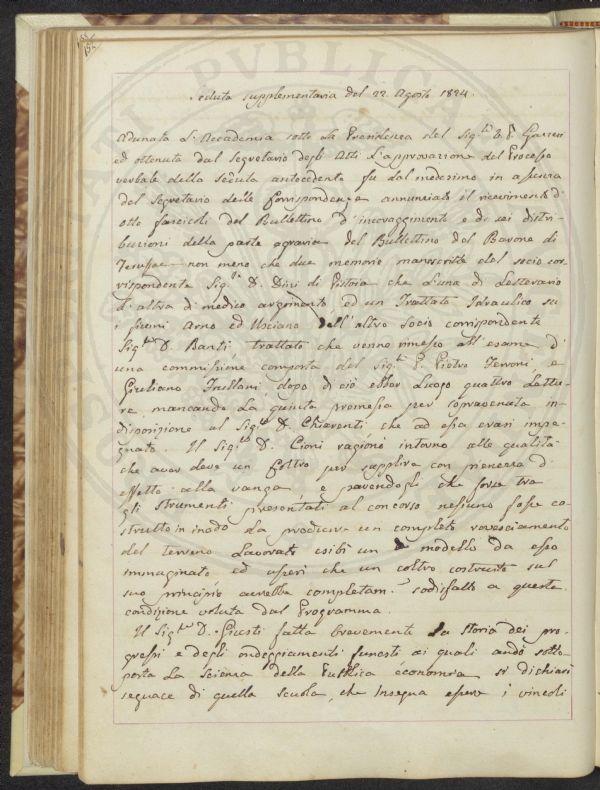 155
156
Seduta supplementaria del 22. Agosto 1824.
Adunata l'Accademia sotto la Presidenza del Sig.re D.r Gazzeri
ed ottenuta dal Segretario degli Atti l'approvazione del Processo
verbale della seduta antecedente fu dal medesimo in assenza
del Segretario delle Corrispondenze annunziato il ricevimento d'
otto fascicoli del Bullettino d'incoraggimento e di sei distri-
buzioni della parte agraria del Bullettino del Barone di
Ferussac non meno che due memorie manoscritte del socio cor-
rispondente Sig.re D. Dini di Pistoia che l'una di Letterario
d'altra di medico argomento, ed un Trattato Idraulico su
i fiumi Arno ed Usciano dell'altro Socio corrispondente
Sig.re D. Banti, trattato che venne rimesso all'esame d'
una commissione composta del Sig.r P. Pietro Ferroni e
Giuliano Frulloni, dopo di ciò ebber luogo quattro Lettu-
re mancando la quinta promessa per sopravenuta in-
disposizione al Sig.re D. Chiarenti che ad essa erasi impe-
gnato. Il Sig.re D. Cioni ragionò intorno alle qualità
che aver deve un Coltro per supplire con pienezza d'
effetto alla vanga, e parendogli che forse tra
gli strumenti presentati al concorso nessuno fosse co-
struito in modo da produrre un completo rovesciamento
del terreno lavorato esibì un modello da esso
immaginato ed asserì che un coltro costruito sul
suo principio avrebbe completam.e sodisfatto a questa
condizione voluta dal Programma.
Il Sig.re D. Giusti fatta brevemente la storia dei pro-
gressi e degli ondeggiamenti funesti ai quali andò sotto-
posta la scienza della Pubblica economia si dichiarò
seguace di quella scuola, che insegna essere i vincoli